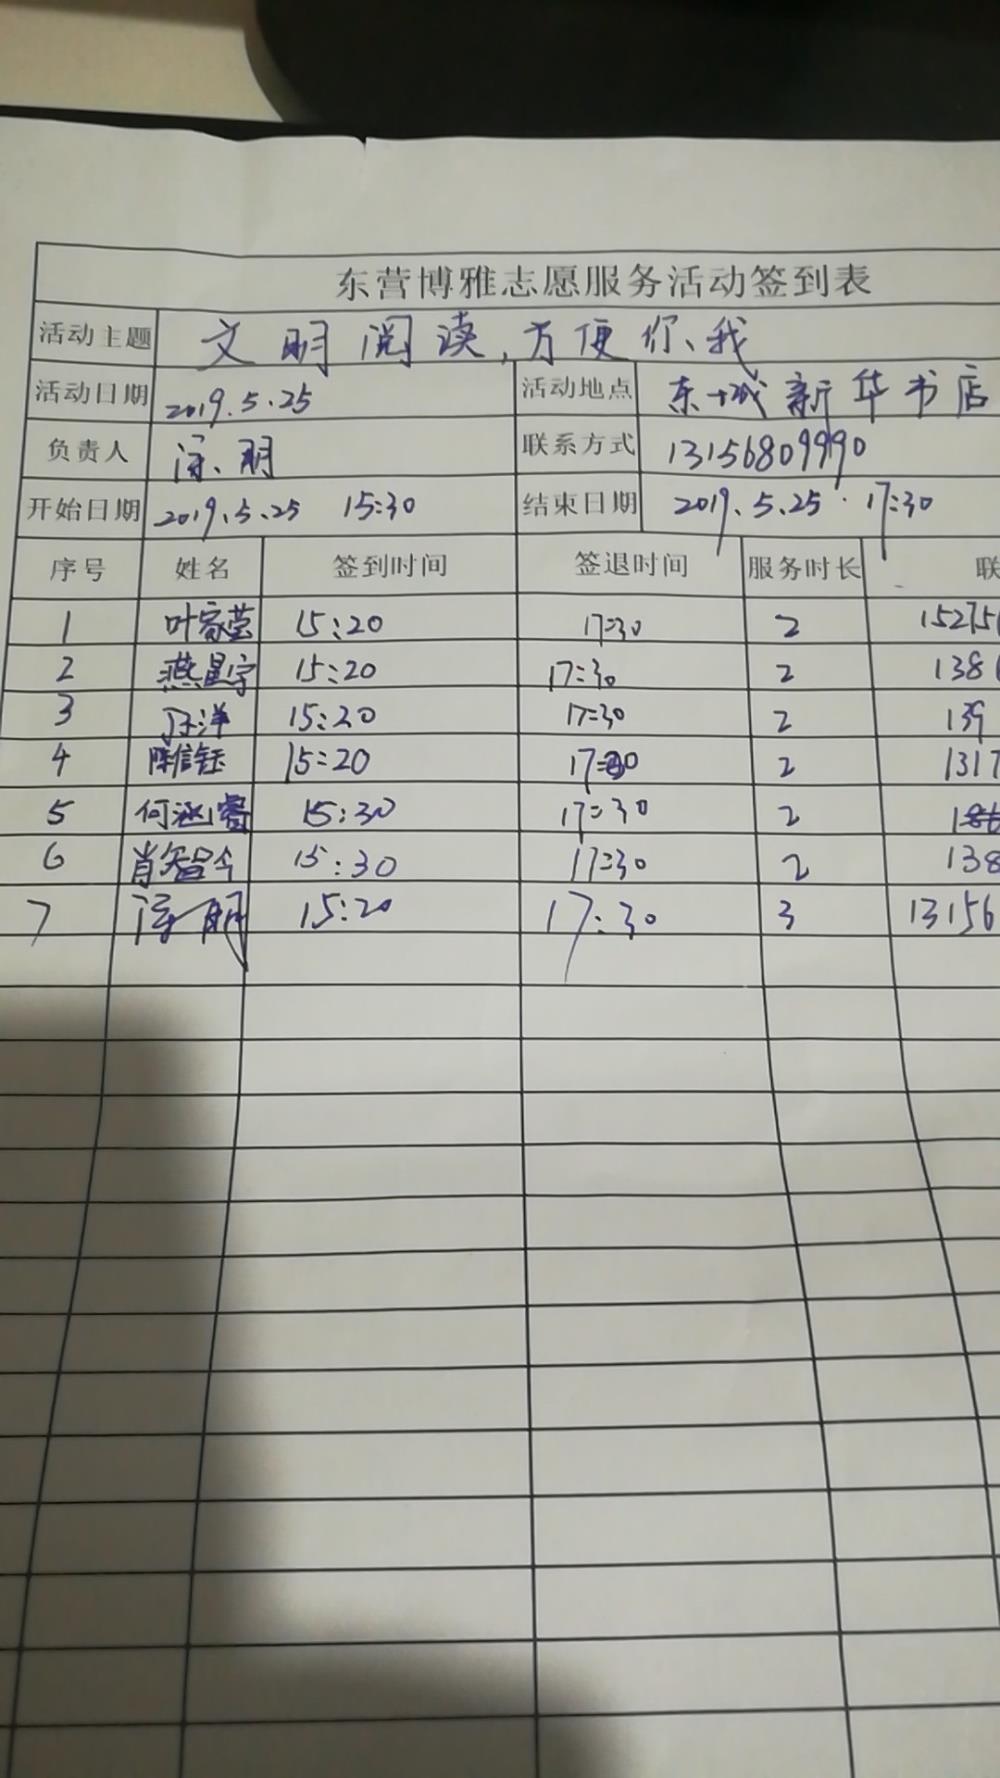 东营博雅志愿服务活动签到表
活动主题 文明阅读,方便你、我
活动日期 2019.5.25 活动地点 东城新华书店
负责人 明 联系方式 13156809990
开始日期 2019.5.25 15:30 结束日期 2019.5.25 17:30
序号 姓名 签到时间 签退时间 服务时长 联
1 叶家莹 15:20 17:30 2 15275
2 燕星宇 15:20 17:30 2 138
3 洋 15:20 17:30 2 139
4 陈信钰 15:20 17:30 2 1317
5 何涵睿 15:30 17:30 2
6 肖智 15:30 17:30 2 138
7 明 15:20 17:30 3 13156